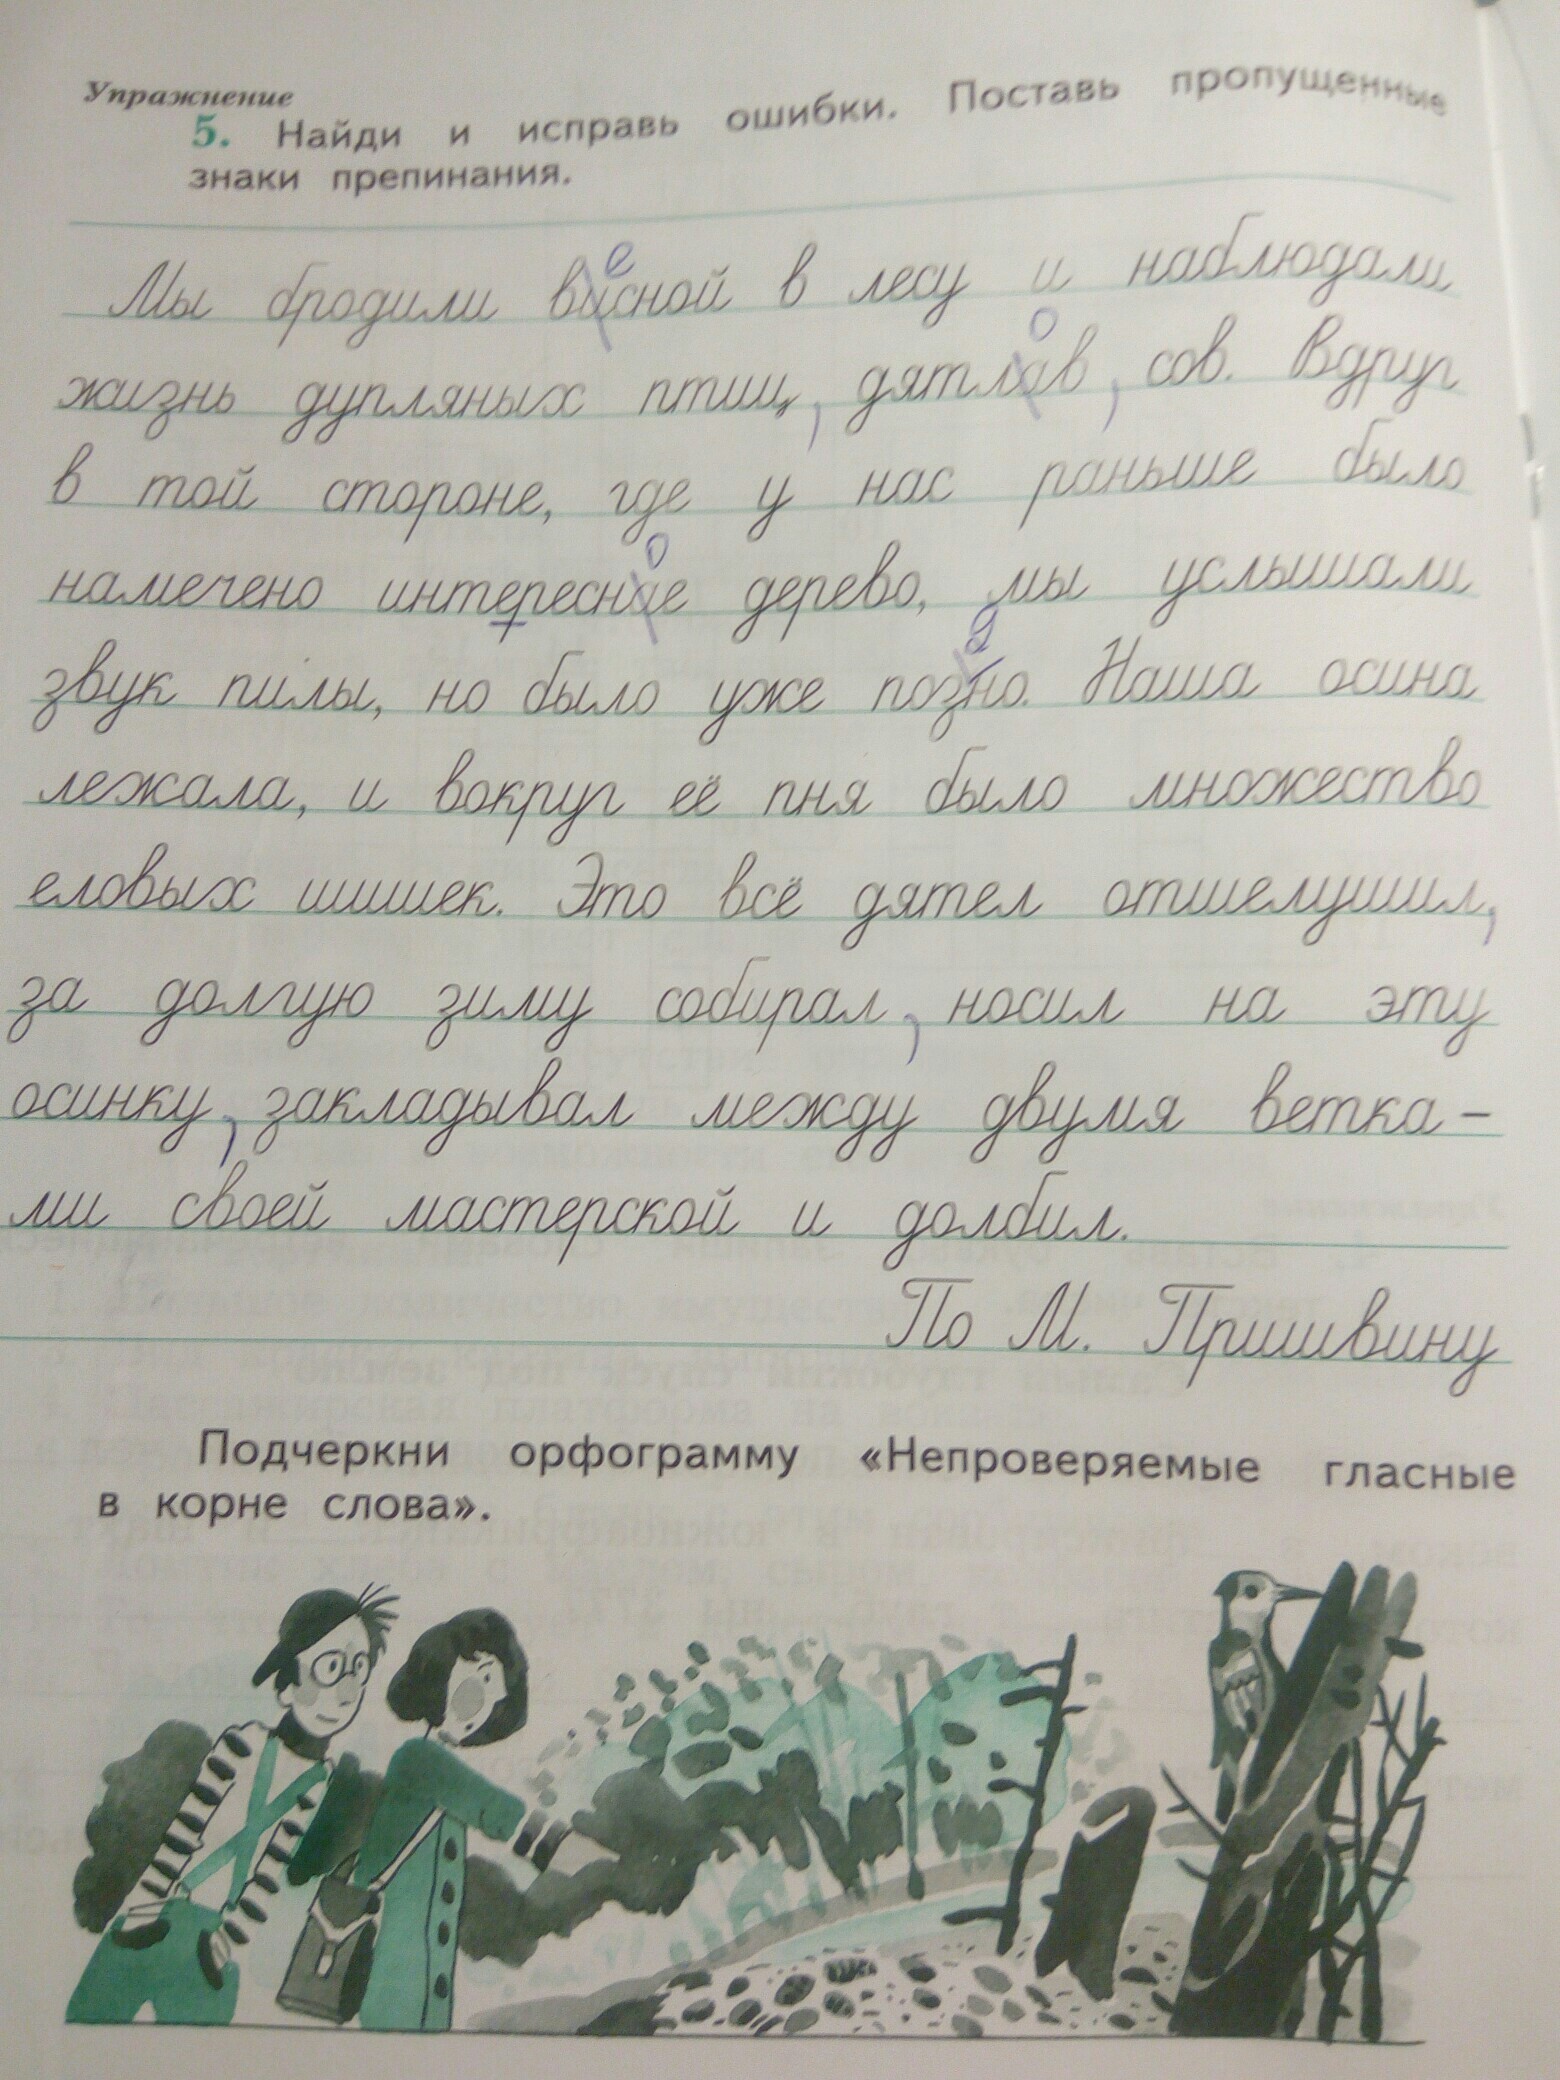 Упражнение
5. Найди и исправь ошибки. Поставь пропущенные
знаки препинания.
е
Мы бродили висной в лесу и наблюдали
о
жизнь дупляных птиц, дятлав, сов. Вдруг
в той стороне, где у нас раньше было
о
намечено интереснае дерево, мы услышали
д
звук пилы, но было уже позно. Наша осина
лежала, и вокруг её пня было множество
еловых шишек. Это всё дятел отшелушил,
за долгую зиму собирал, носил на эту
осинку, закладывал между двумя ветка-
ми своей мастерской и долбил.
По М. Пришвину
Подчеркни орфограмму «Непроверяемые гласные
в корне слова».